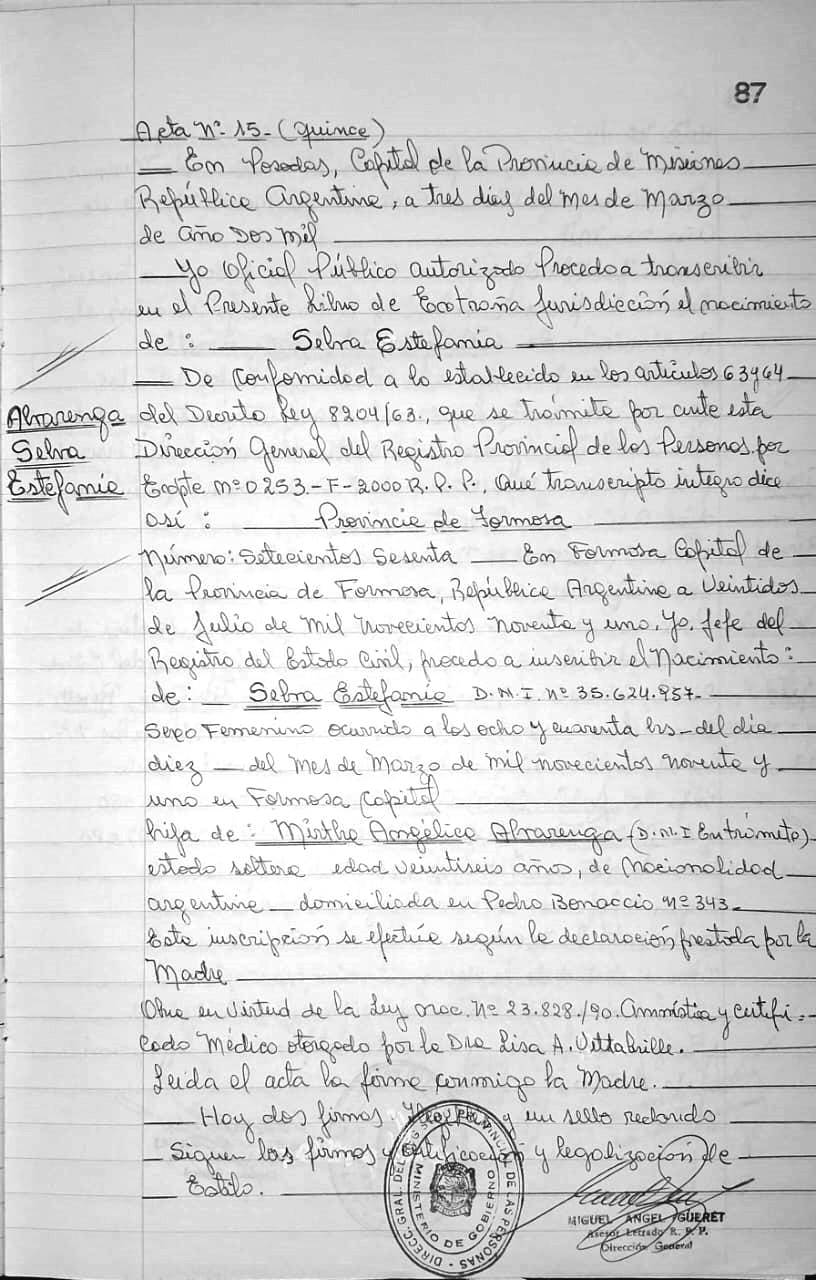 87
Acta Nº 15 - (quince)
En Posadas, Capital de la Provincia de Misiones
República Argentina, a tres días del mes de Marzo
de año Dos Mil
Yo Oficial Público autorizado Procedo a transcribir
en el Presente Libro de Extraña Jurisdicción el nacimiento
de : Selva Estefanía
De Conformidad a lo establecido en los artículos 63 y 64
Alvarenga
Selva
Estefanía
del Decreto Ley 8204/63., que se tramite por ante esta
Dirección General del Registro Provincial de las Personas. por
Expte nº 0253.-F-2000 R.P.P., Qué transcripto integro dice
así : Provincia de Formosa
Número: Setecientos Sesenta En Formosa Capital de
la Provincia de Formosa, República Argentina a Veintidos
de Julio de Mil Novecientos Noventa y uno. Yo, Jefe del
Registro del Estado Civil, procedo a inscribir el Nacimiento:
de: Selva Estefanía D.N.I. nº 35.624.957.
Sexo Femenino ocurrido a los ocho y cuarenta hrs - del día
diez - del Mes de Marzo de mil novecientos noventa y
uno en Formosa Capital
hija de: Mirtha Angélica Alvarenga (D.N.I En trámite)
estado soltera edad veintiseis años, de Nacionalidad
argentina domiciliada en Pedro Bonaccio nº 343.
Esta inscripción se efectúa según la declaración prestada por la
Madre
Obra en Virtud de la Ley nac. Nº 23.828./90. Ammistia y certifi-
cado Médico otorgado por la Dra Lisa A. Vittabrille.
Leida el acta la firma conmigo la Madre.
Hay dos firmas y un sello redondo
Siguen las firmas y certificación y legalización de
Estilo.
DIRECC. GRAL. DEL REG. PROVINCIAL DE LAS PERSONAS
MINISTERIO DE GOBIERNO
MIGUEL ANGEL GUERET
Asesor Letrado R. P. P.
Dirección General